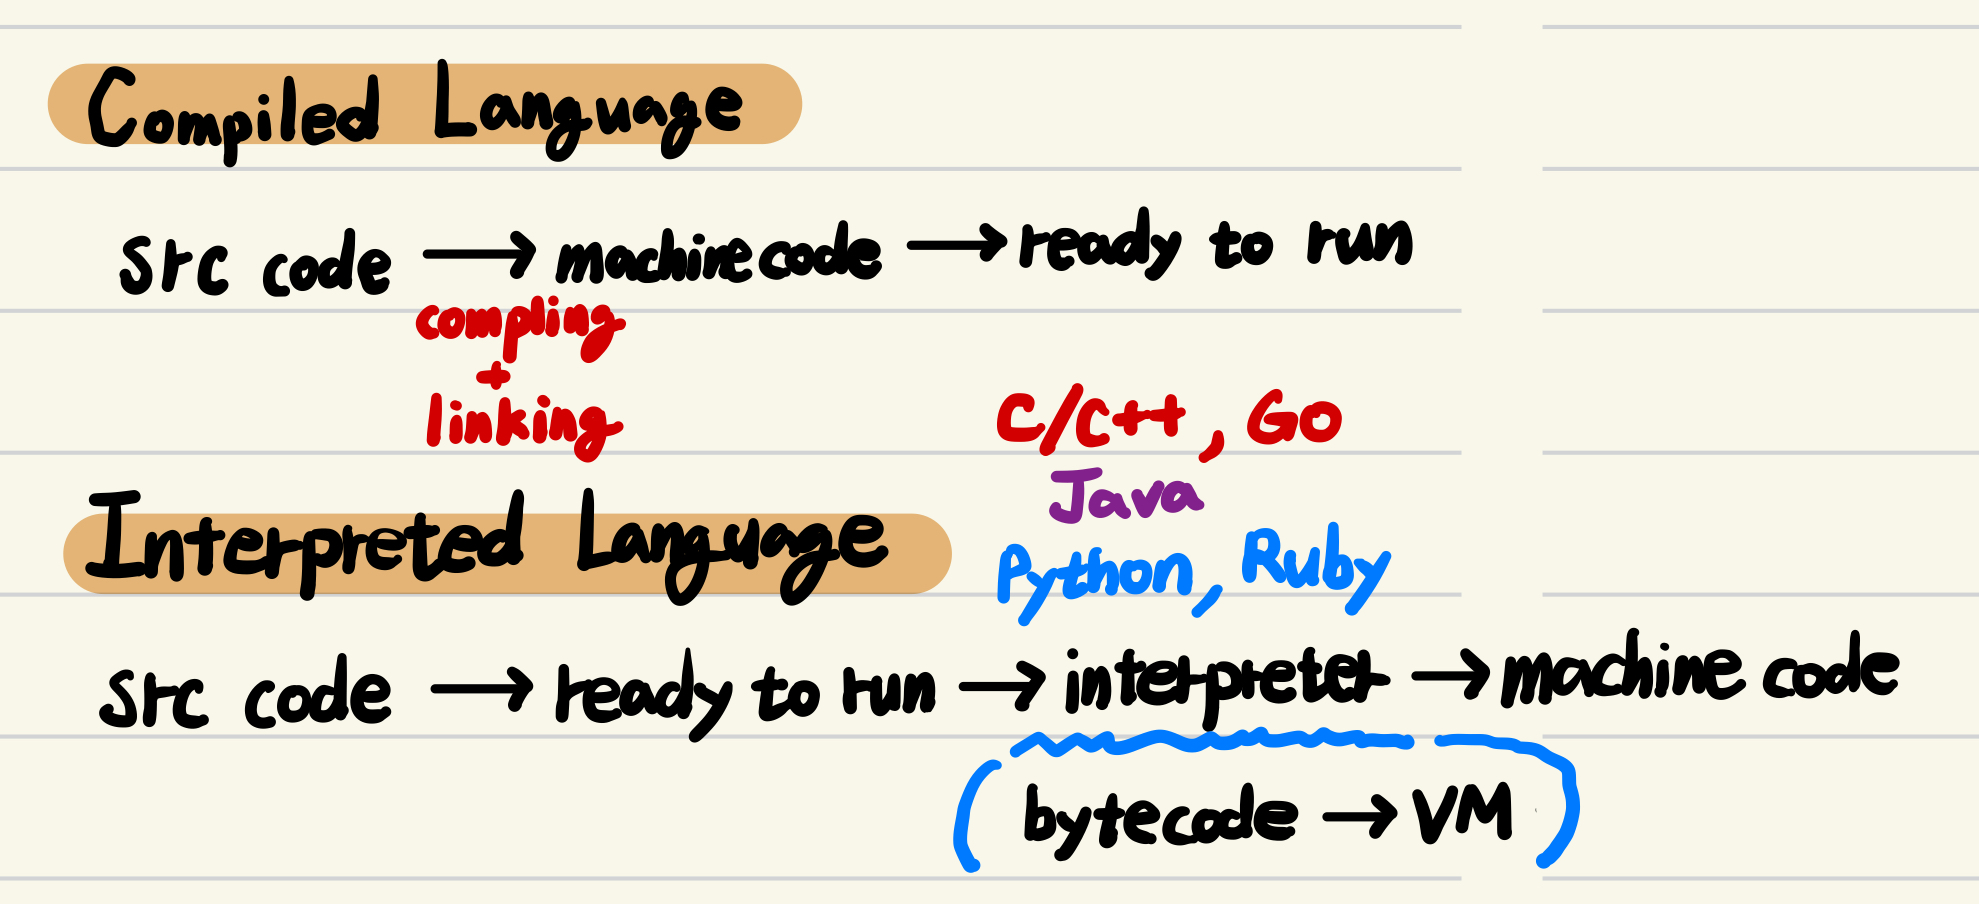 Compiled Language
src code → machine code → ready to run
compling
+
linking
C/C++, GO
Java
Python, Ruby
Interpreted Language
src code → ready to run → interpreter → machine code
(bytecode → VM)